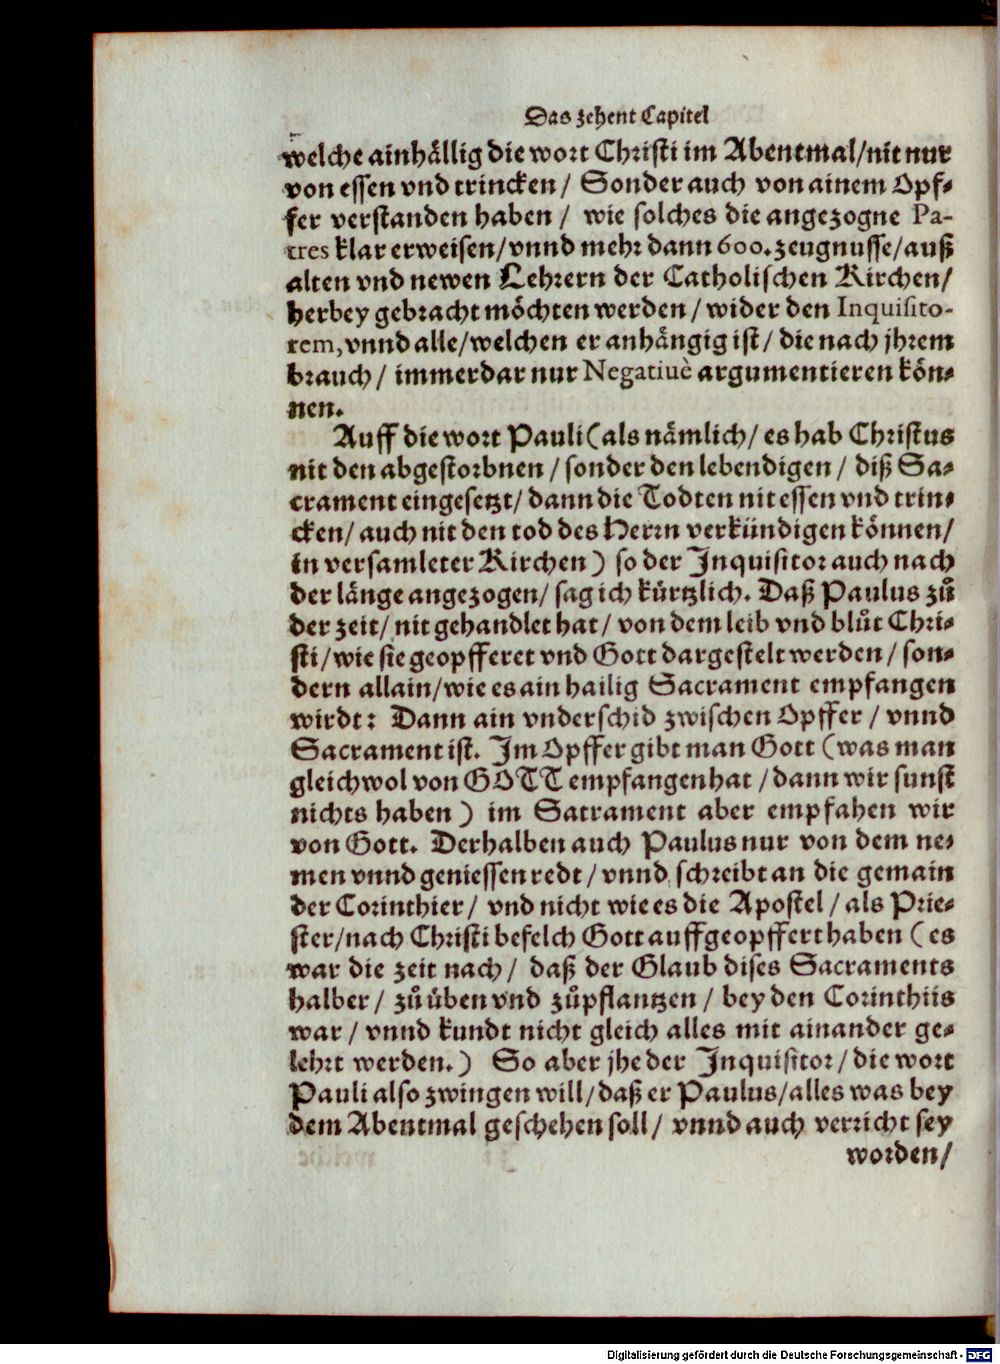 Das zehent Capitel
welche ainhällig die wort Christi im Abentmal/nit nur
von essen vnd trincken/ Sonder auch von ainem Opf-
fer verstanden haben/ wie solches die angezogne Pa-
tres klar erweisen/vnnd mehr dann 600. zeugnusse/auß
alten vnd newen Lehrern der Catholischen Kirchen/
herbey gebracht möchten werden/ wider den Inquisito-
rem, vnnd alle/welchen er anhängig ist/ die nach jhrem
brauch/ immerdar nur Negatiuè argumentieren kön-
nen.
Auff die wort Pauli (als nämlich/ es hab Christus
nit den abgestorbnen/ sonder den lebendigen/ diß Sa-
crament eingesetzt/ dann die Todten nit essen vnd trin-
cken/ auch nit den tod des Herrn verkündigen können/
in versamleter Kirchen) so der Inquisitor auch nach
der länge angezogen/ sag ich kürtzlich. Daß Paulus zů
der zeit/ nit gehandlet hat/ von dem leib vnd blůt Chri-
sti/wie sie geopfferet vnd Gott dargestelt werden/ son-
dern allain/wie es ain hailig Sacrament empfangen
wirdt: Dann ain vnderschid zwischen Opffer/ vnnd
Sacrament ist. Im Opffer gibt man Gott (was man
gleichwol von GOTT empfangen hat/dann wir sunst
nichts haben) im Sacrament aber empfahen wir
von Gott. Derhalben auch Paulus nur von dem ne-
men vnnd geniessen redt/ vnnd schreibt an die gemain
der Corinthier/ vnd nicht wie es die Apostel/ als Prie-
ster/nach Christi befelch Gott auffgeopffert haben (es
war die zeit nach/ daß der Glaub dises Sacraments
halber/ zů üben vnd zůpflantzen/ bey den Corinthiis
war/ vnnd kundt nicht gleich alles mit ainander ge-
lehrt werden.) So aber jhe der Inquisitor/ die wort
Pauli also zwingen will/daß er Paulus/alles was bey
dem Abentmal geschehen soll/ vnnd auch verricht sey
worden/
Digitalisierung gefördert durch die Deutsche Forschungsgemeinschaft - DFG